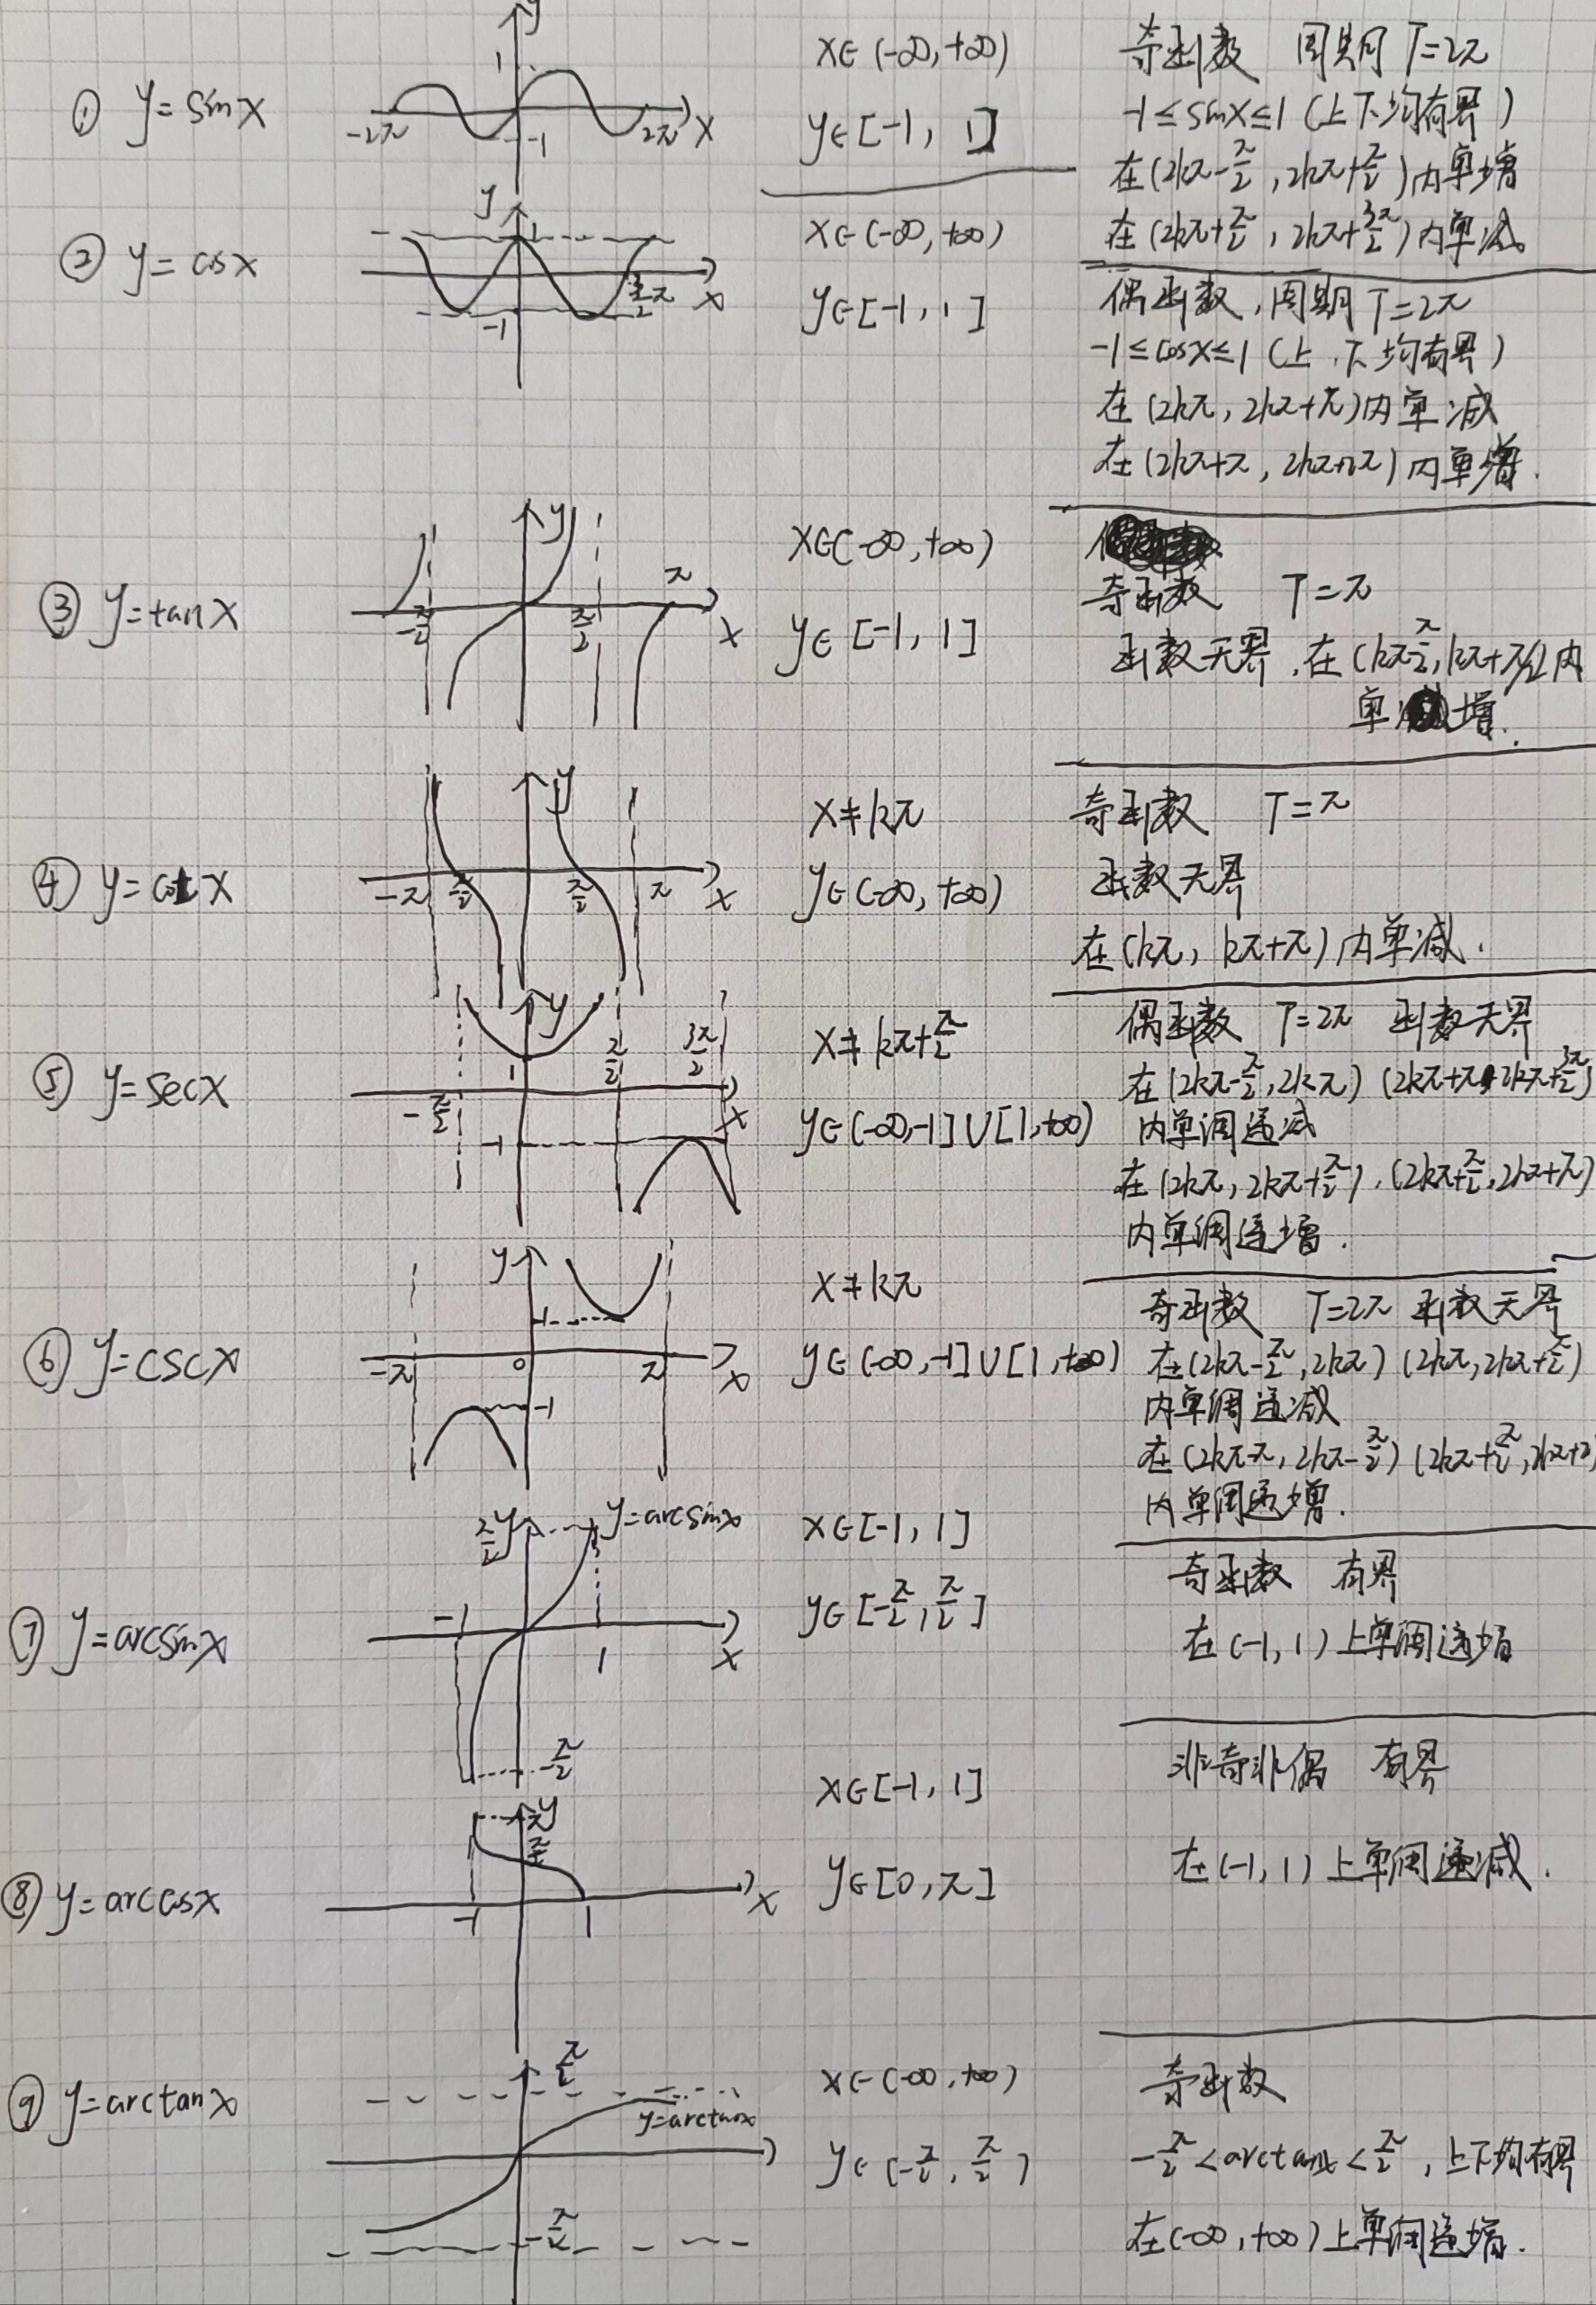 ① y=sinx
y
1
-2π
-1
2π
x
x∈(-∞,+∞)
y∈[-1,1]
奇函数 周期T=2π
-1≤sinx≤1(上下均有界)
在(2kπ-π/2,2kπ+π/2)内单增
在(2kπ+π/2,2kπ+3π/2)内单减
② y=cosx
y
1
-1
π
x
x∈(-∞,+∞)
y∈[-1,1]
偶函数,周期T=2π
-1≤cosx≤1(上、下均有界)
在(2kπ,2kπ+π)内单减
在(2kπ+π,2kπ+2π)内单增.
③ y=tanx
y
-π/2
π/2
π
x
x∈(-∞,+∞)
y∈[-1,1]
奇函数 T=π
函数无界.在(kπ-π/2,kπ+π/2内
单增.
④ y=cotx
y
-π
π/2
π/2
π
x
x≠kπ
y∈(-∞,+∞)
奇函数 T=π
函数无界
在(kπ,kπ+π)内单减.
⑤ y=secx
y
1
-π/2
π/2
3π/2
x
-1
x≠kπ+π/2
y∈(-∞,-1]∪[1,+∞)
偶函数 T=2π 函数无界
在(2kπ-π/2,2kπ)(2kπ+π,2kπ+3π/2)
内单调递减
在(2kπ,2kπ+π/2).(2kπ+π/2,2kπ+π)
内单调递增.
⑥ y=cscx
y
1
-π
0
π
x
-1
x≠kπ
y∈(-∞,-1]∪[1,+∞)
奇函数 T=2π 函数无界
在(2kπ-π/2,2kπ)(2kπ,2kπ+π/2)
内单调递减
在(2kπ-π,2kπ-π/2)(2kπ+π/2,2kπ+π
内单调递增.
⑦ y=arcsinx
π/2
y
y=arcsinx
-1
1
x
-π/2
x∈[-1,1]
y∈[-π/2,π/2]
奇函数 有界
在(-1,1)上单调递增
⑧ y=arccosx
π
y
π/2
-1
1
x
x∈[-1,1]
y∈[0,π]
非奇非偶 有界
在(-1,1)上单调递减.
⑨ y=arctanx
π/2
y=arctanx
-π/2
x∈(-∞,+∞)
y∈(-π/2,π/2)
奇函数
-π/2<arctanx<π/2,上下均有界
在(-∞,+∞)上单调递增.